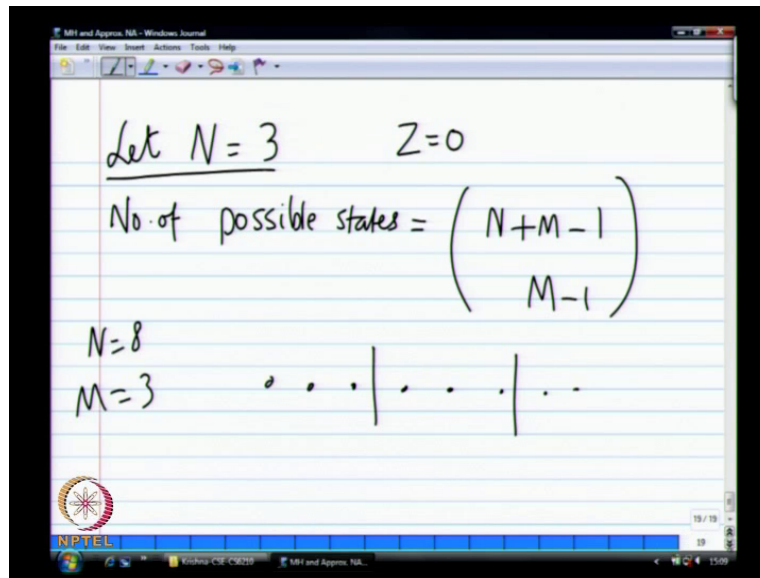 MH and Approx. NA - Windows Journal
File Edit View Insert Actions Tools Help
Let N = 3 Z=0
No. of possible states = ( N+M-1
M-1 )
N=8
M=3
19 / 19
19
NPTEL
Krishna-CSE-C98210 MH and Approx. NA... 15:09